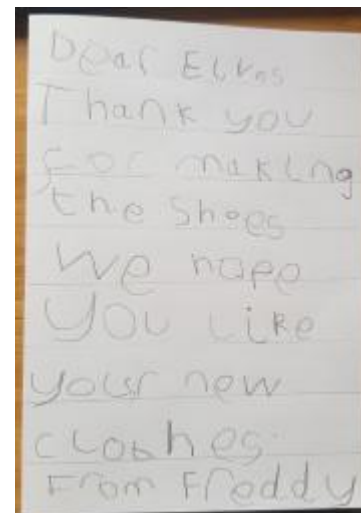 Dear Elves
Thank you
for making
the Shoes
We hope
You Like
your new
clothes.
From Freddy